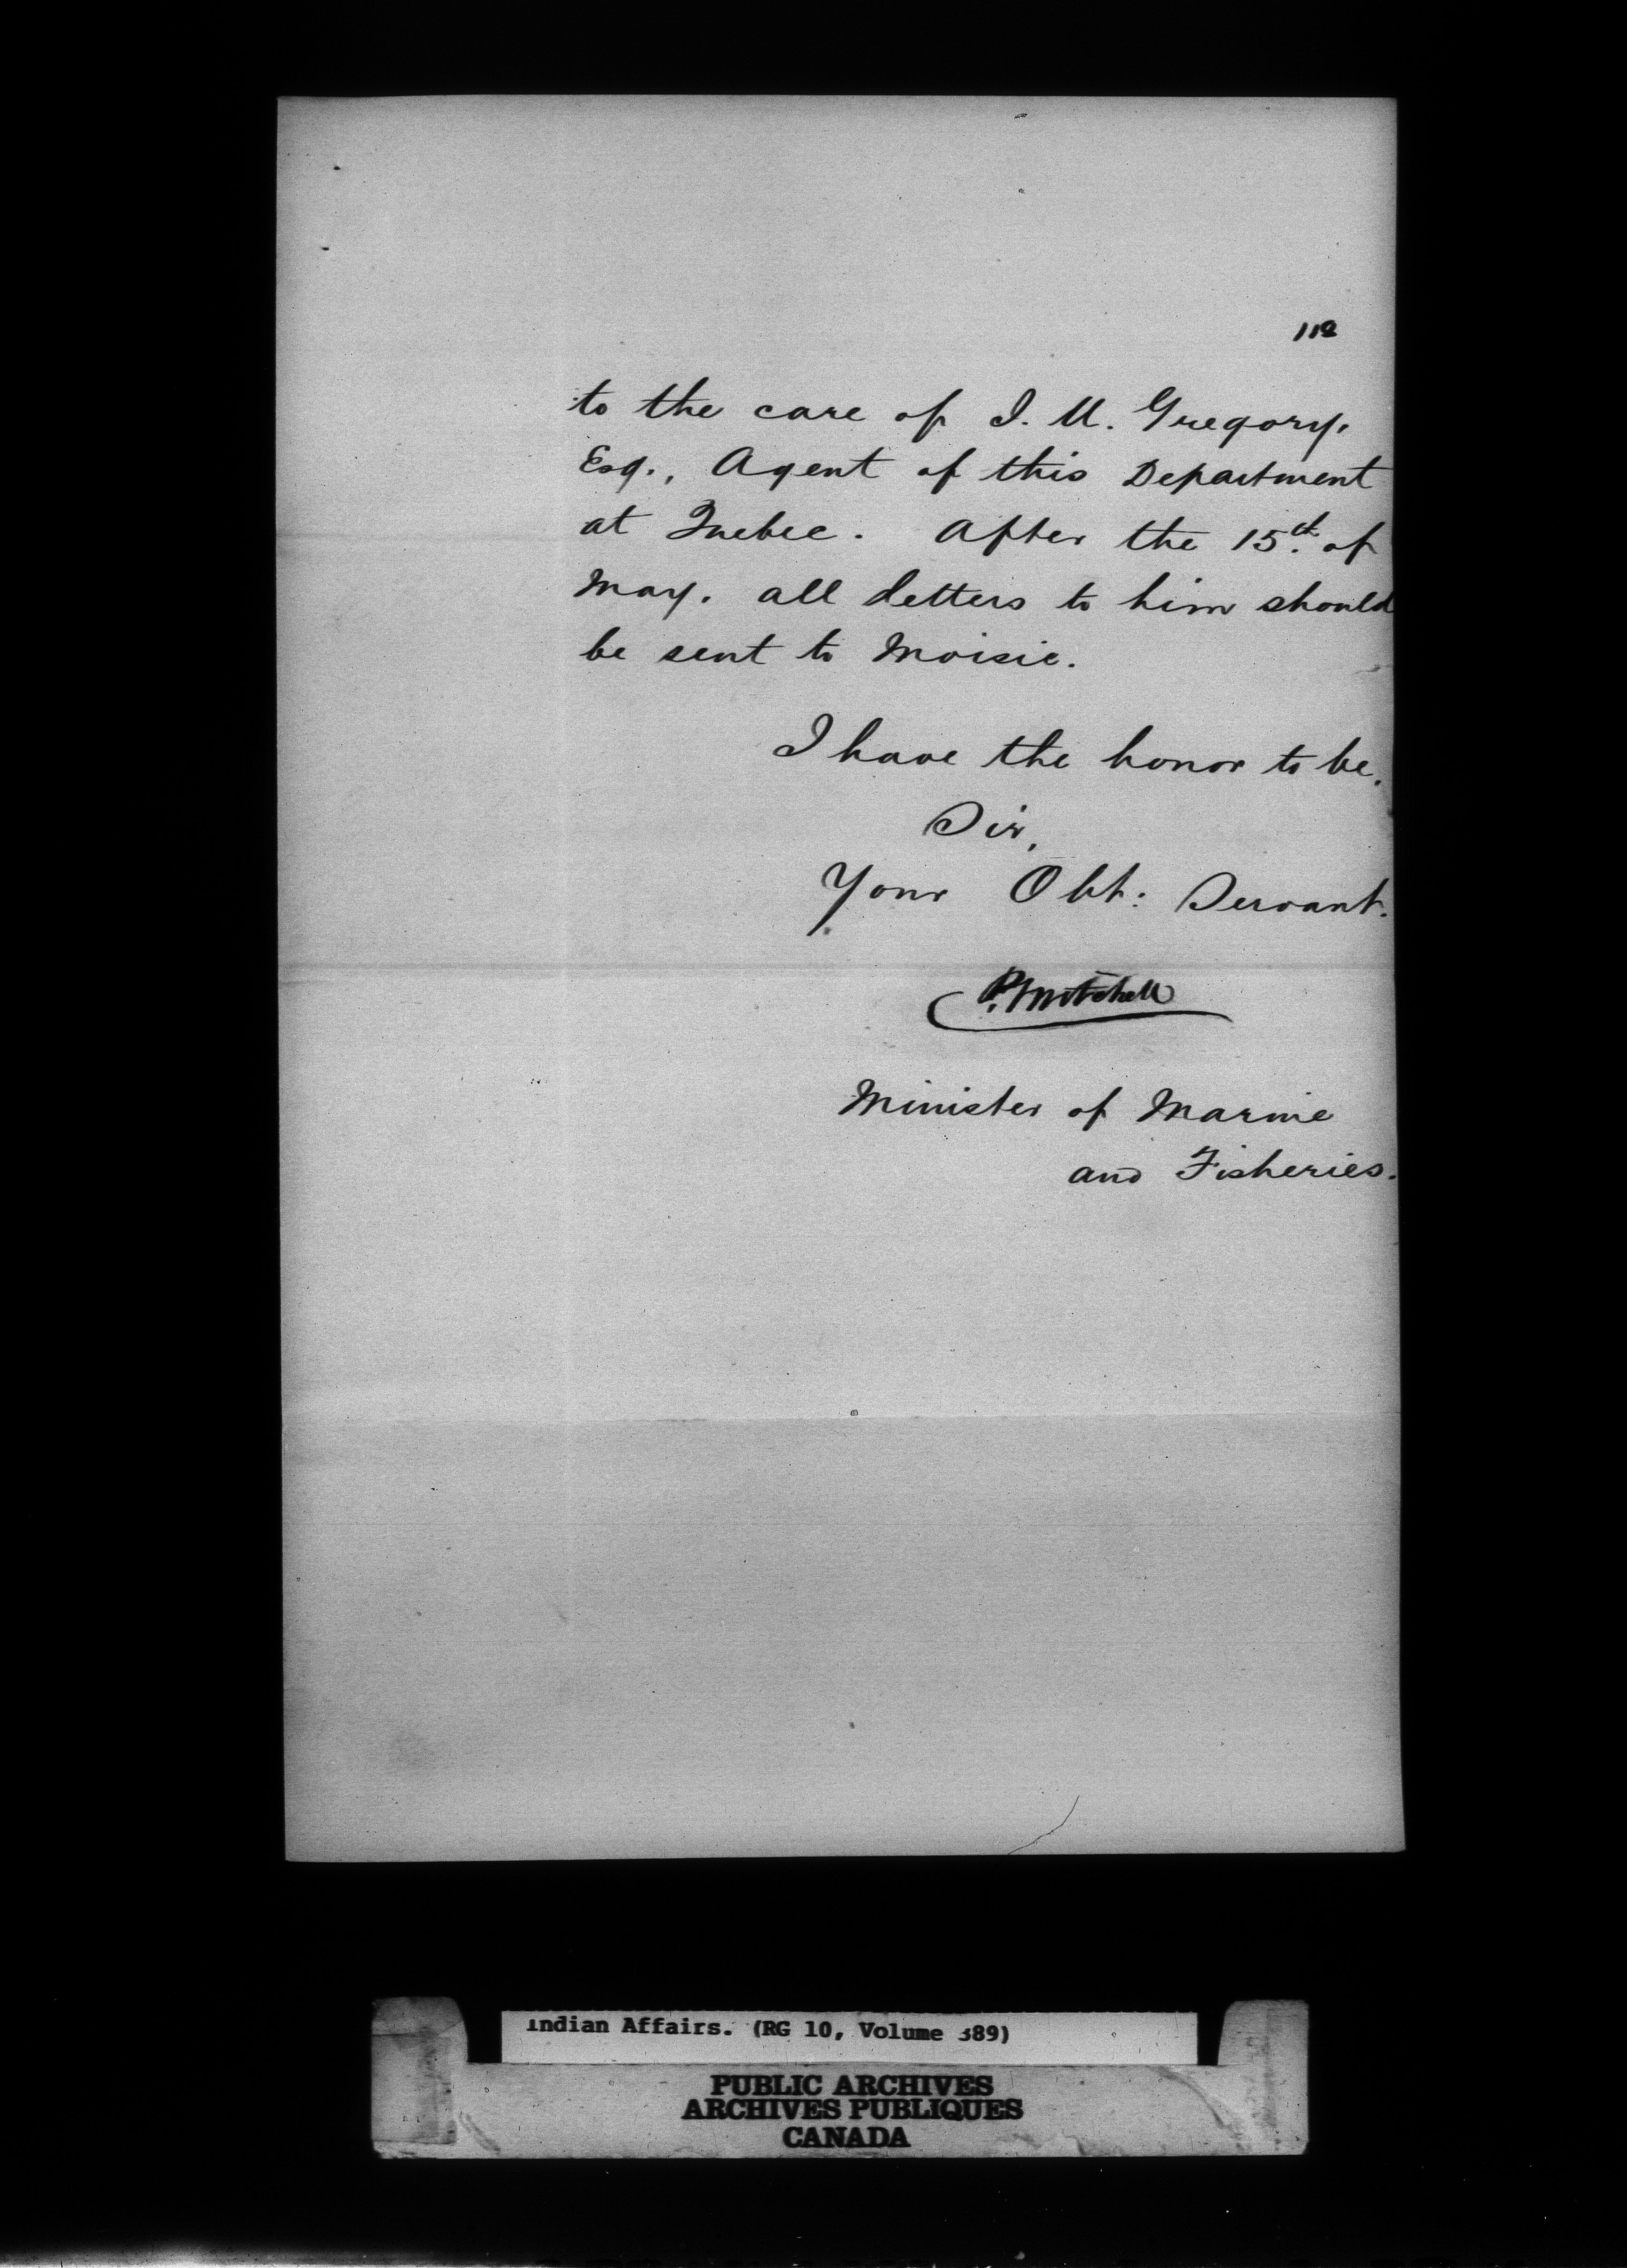 118
to the care of J. U. Gregory,
Esq., Agent of this Department
at Quebec. After the 15th. of
May. all letters to him should
be sent to Moisie.
I have the honor to be,
Sir,
Your Obt: Servant.
P. Mitchell
Minister of Marine
and Fisheries.
Indian Affairs. (RG 10, Volume 389)
PUBLIC ARCHIVES
ARCHIVES PUBLIQUES
CANADA